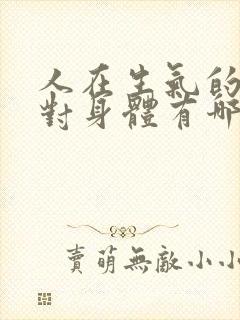 人在生氣的
對身體有哪
賣萌無敵小小